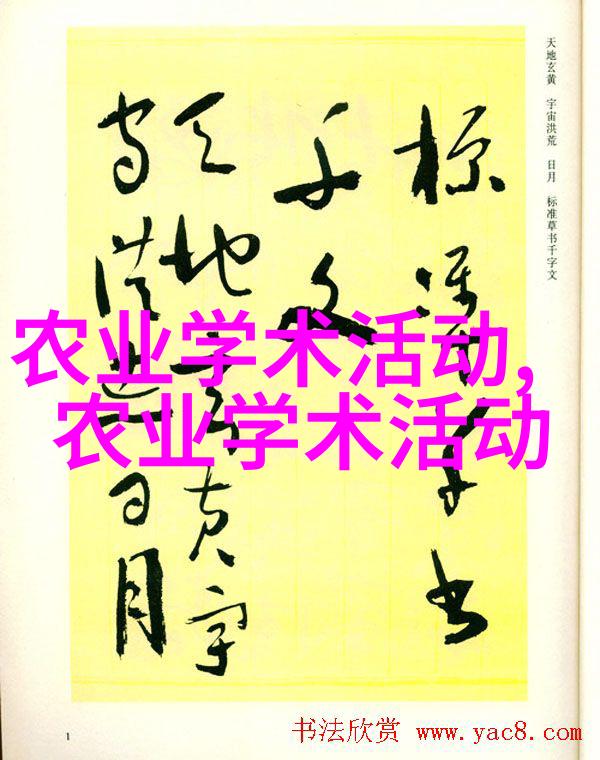 天地玄黄 宇宙洪荒 日月 标准草书千字文
标准草书
千文
天地玄黄宇
宙洪荒日月
农业学术活动,
农业学术活动
1
书法欣赏 www.yac8.com